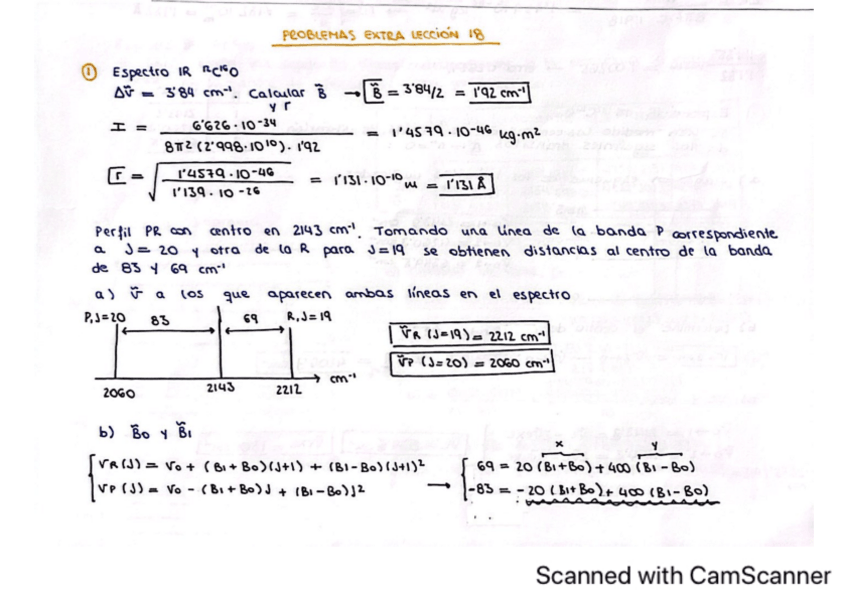 PROBLEMAS EXTRA LECCIÓN 18
① Espectro IR ¹²C¹⁶O
Δṽ = 3'84 cm⁻¹. Calcular B̃ y r → B̃ = 3'84/2 = 1'92 cm⁻¹
I = 6'626·10⁻³⁴ / 8π² (2'998·10¹⁰)·1'92 = 1'4579·10⁻⁴⁶ kg·m²
r = √(1'4579·10⁻⁴⁶ / 1'139·10⁻²⁶) = 1'131·10⁻¹⁰ m = 1'131 Å
Perfil PR con centro en 2143 cm⁻¹. Tomando una línea de la banda P correspondiente
a J=20 y otra de la R para J=19, se obtienen distancias al centro de la banda
de 83 y 69 cm⁻¹
a) ṽ a los que aparecen ambas líneas en el espectro
P, J=20 83 69 R, J=19
ṽR (J=19) = 2212 cm⁻¹
ṽP (J=20) = 2060 cm⁻¹
2060 2143 2212 cm⁻¹
b) B̃0 y B̃1
x y
VR(J) = V0 + (B1+B0)(J+1) + (B1-B0)(J+1)² 69 = 20 (B1+B0) + 400 (B1-B0)
VP(J) = V0 - (B1+B0)J + (B1-B0)J² → -83 = -20 (B1+B0) + 400 (B1-B0)
Scanned with CamScanner